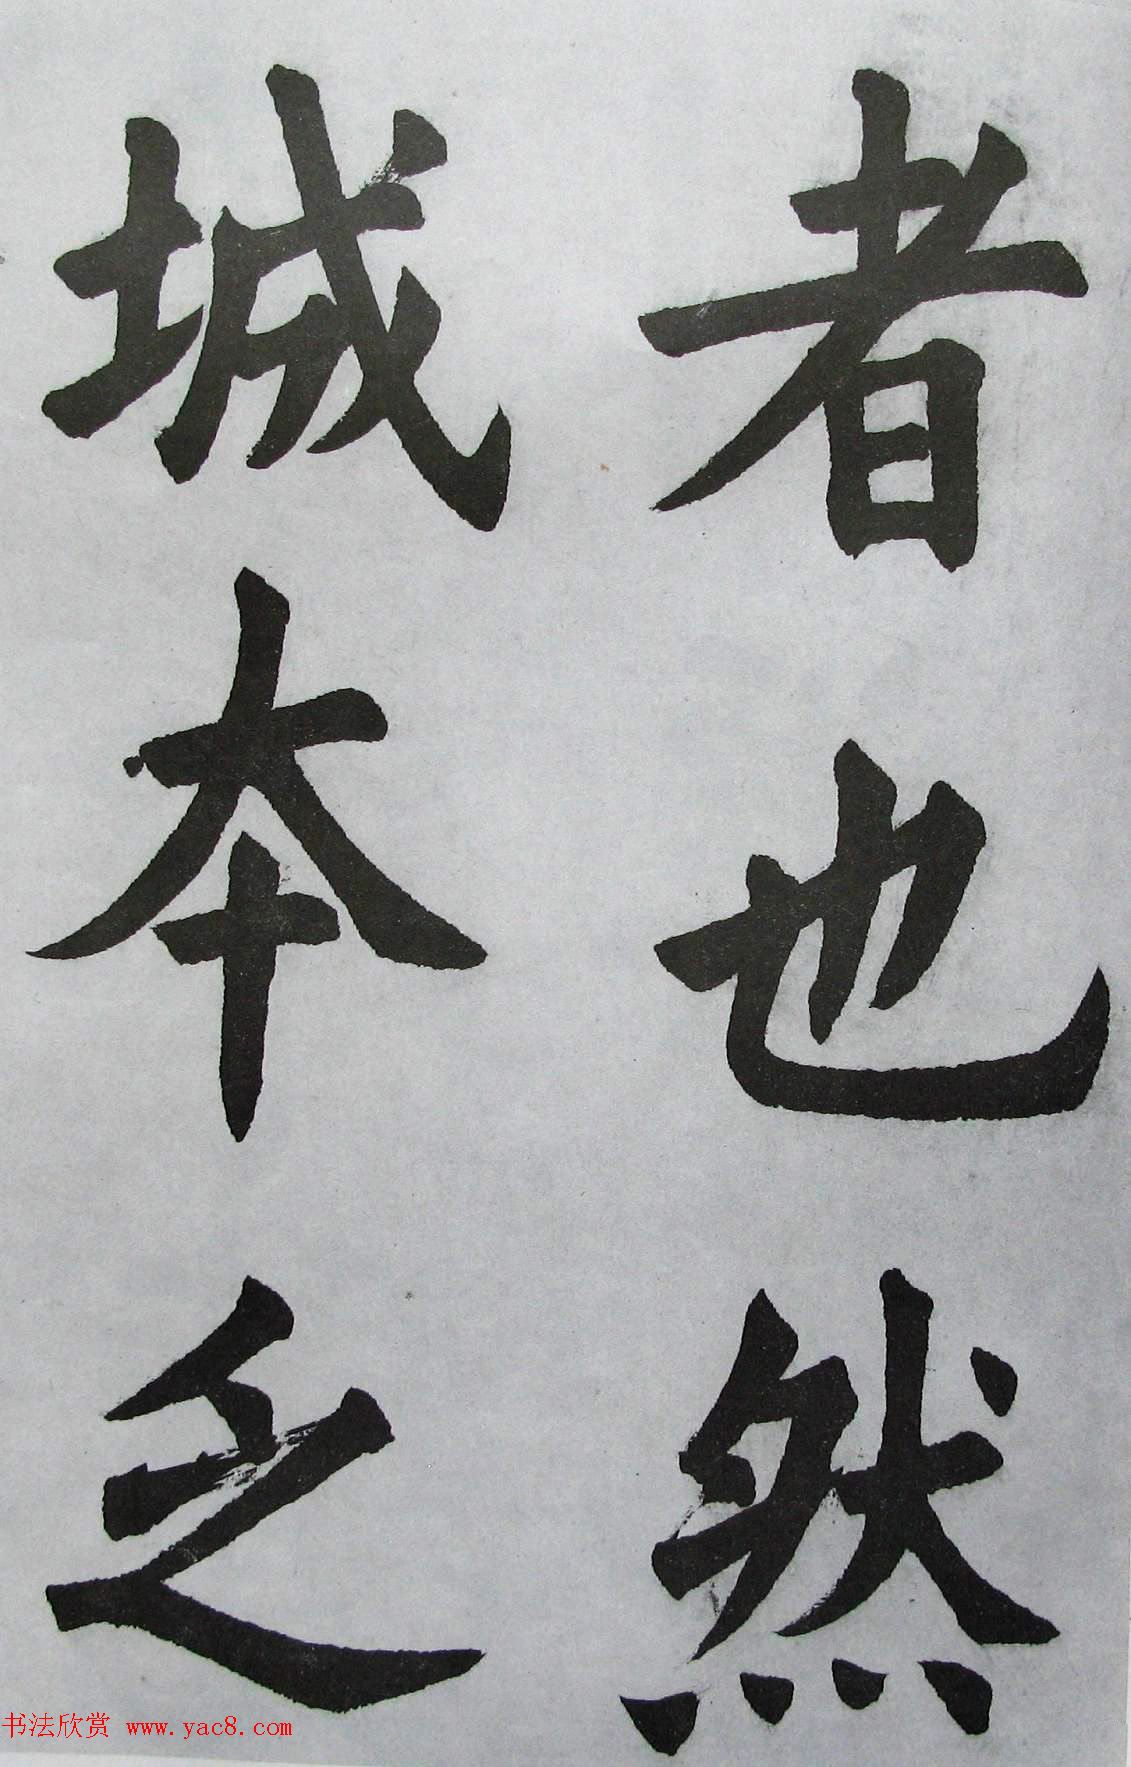 者也然
城本乏
书法欣赏 www.yac8.com